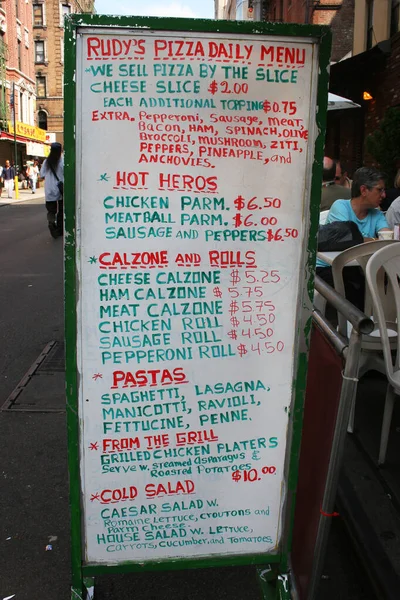 RUDY'S PIZZA DAILY MENU
-WE SELL PIZZA BY THE SLICE
CHEESE SLICE $2.00
EACH ADDITIONAL TOPPING $0.75
EXTRA. Pepperoni, Sausage, Meat,
Bacon, HAM, SPINACH, OLIVE
BROCCOLI, MUSHROOM, ZITI,
PEPPERS, PINEAPPLE, and
ANCHOVIES.
* HOT HEROS
CHICKEN PARM. $6.50
MEATBALL PARM. $6.00
SAUSAGE AND PEPPERS $6.50
* CALZONE AND ROLLS
CHEESE CALZONE $5.25
HAM CALZONE $5.75
MEAT CALZONE $5.75
CHICKEN ROLL $4.50
SAUSAGE ROLL $4.50
PEPPERONI ROLL $4.50
* PASTAS
SPAGHETTI, LASAGNA,
MANICOTTI, RAVIOLI,
FETTUCINE, PENNE.
* FROM THE GRILL
GRILLED CHICKEN PLATERS
Serve w. steamed Asparagus &
Roasted Potatoes
$10.00
* COLD SALAD
CAESAR SALAD W.
Romaine Lettuce, croutons and
Parm cheese.
HOUSE SALAD W. Lettuce,
carrots, cucumber, and Tomatoes.